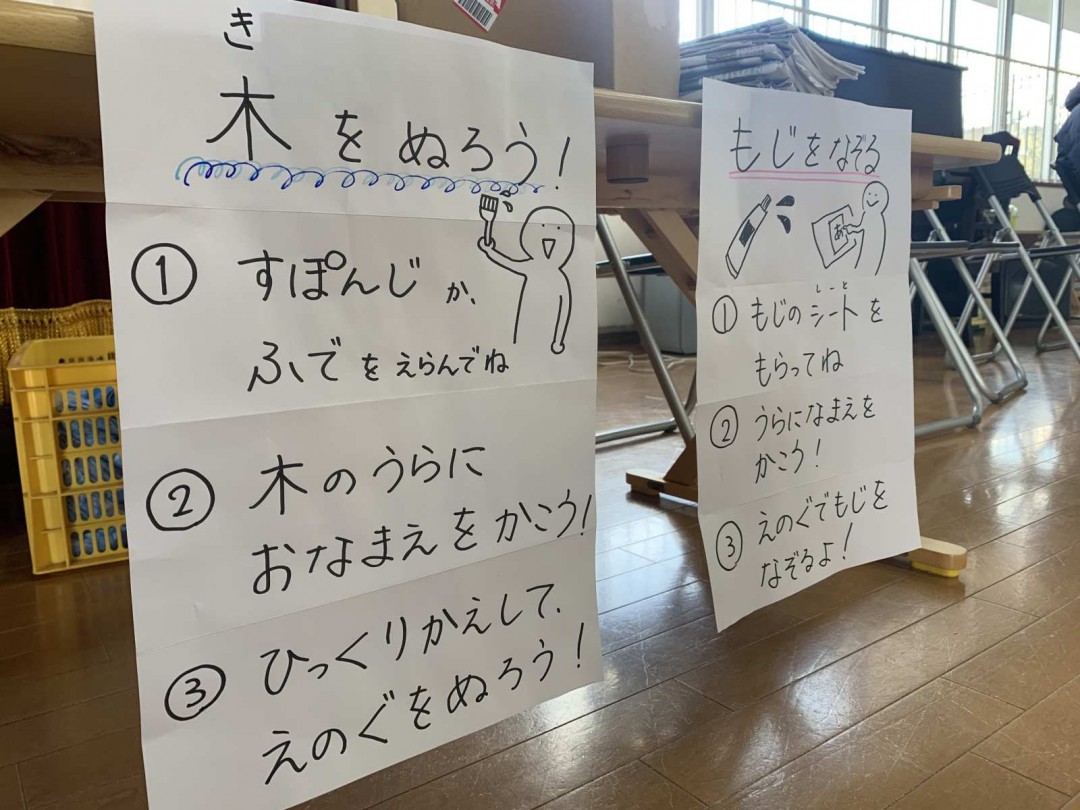 き
木をぬろう!
① すぽんじか、
ふでをえらんでね
② 木のうらに
おなまえをかこう!
③ ひっくりかえして、
えのぐをぬろう!
もじをなぞる
あ
しーと
① もじのシートを
もらってね
② うらになまえを
かこう!
③ えのぐでもじを
なぞるよ!